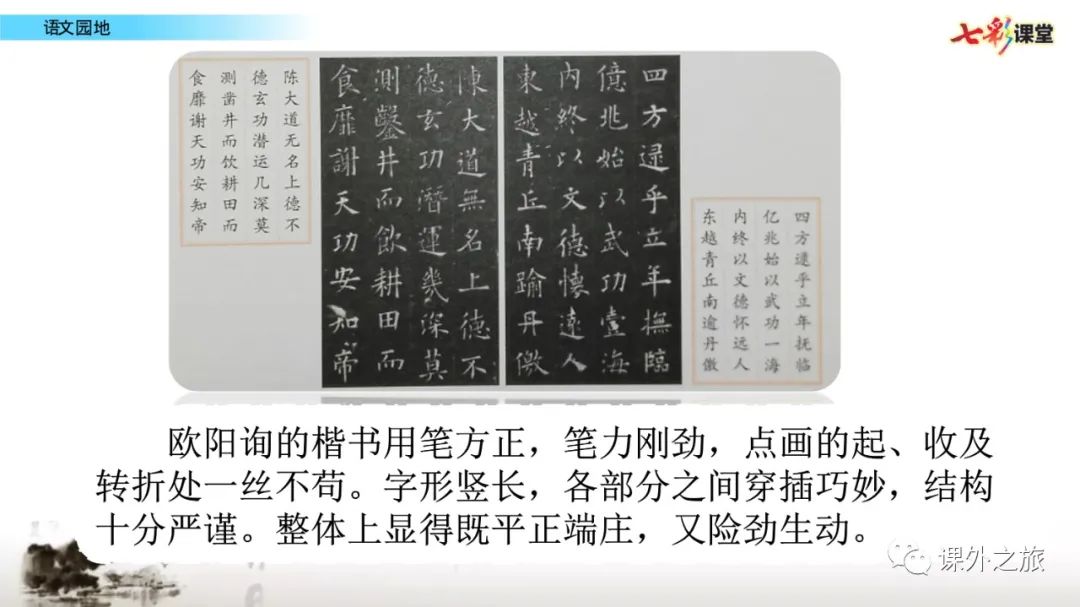 语文园地
七彩课堂
陈大道无名上德不
德玄功潜运几深莫
测凿井而饮耕田而
食靡谢天功安知帝
四方逯乎立年抚临
億兆始以武功壹海
内終以文德懷遠人
東越青丘南踰丹徼
陳大道無名上德不
德玄功潛運幾深莫
測鑿井而飲耕田而
食靡謝天功安知帝
四方逮乎立年抚临
亿兆始以武功一海
内终以文德怀远人
东越青丘南逾丹徼
欧阳询的楷书用笔方正，笔力刚劲，点画的起、收及
转折处一丝不苟。字形竖长，各部分之间穿插巧妙，结构
十分严谨。整体上显得既平正端庄，又险劲生动。
课外之旅